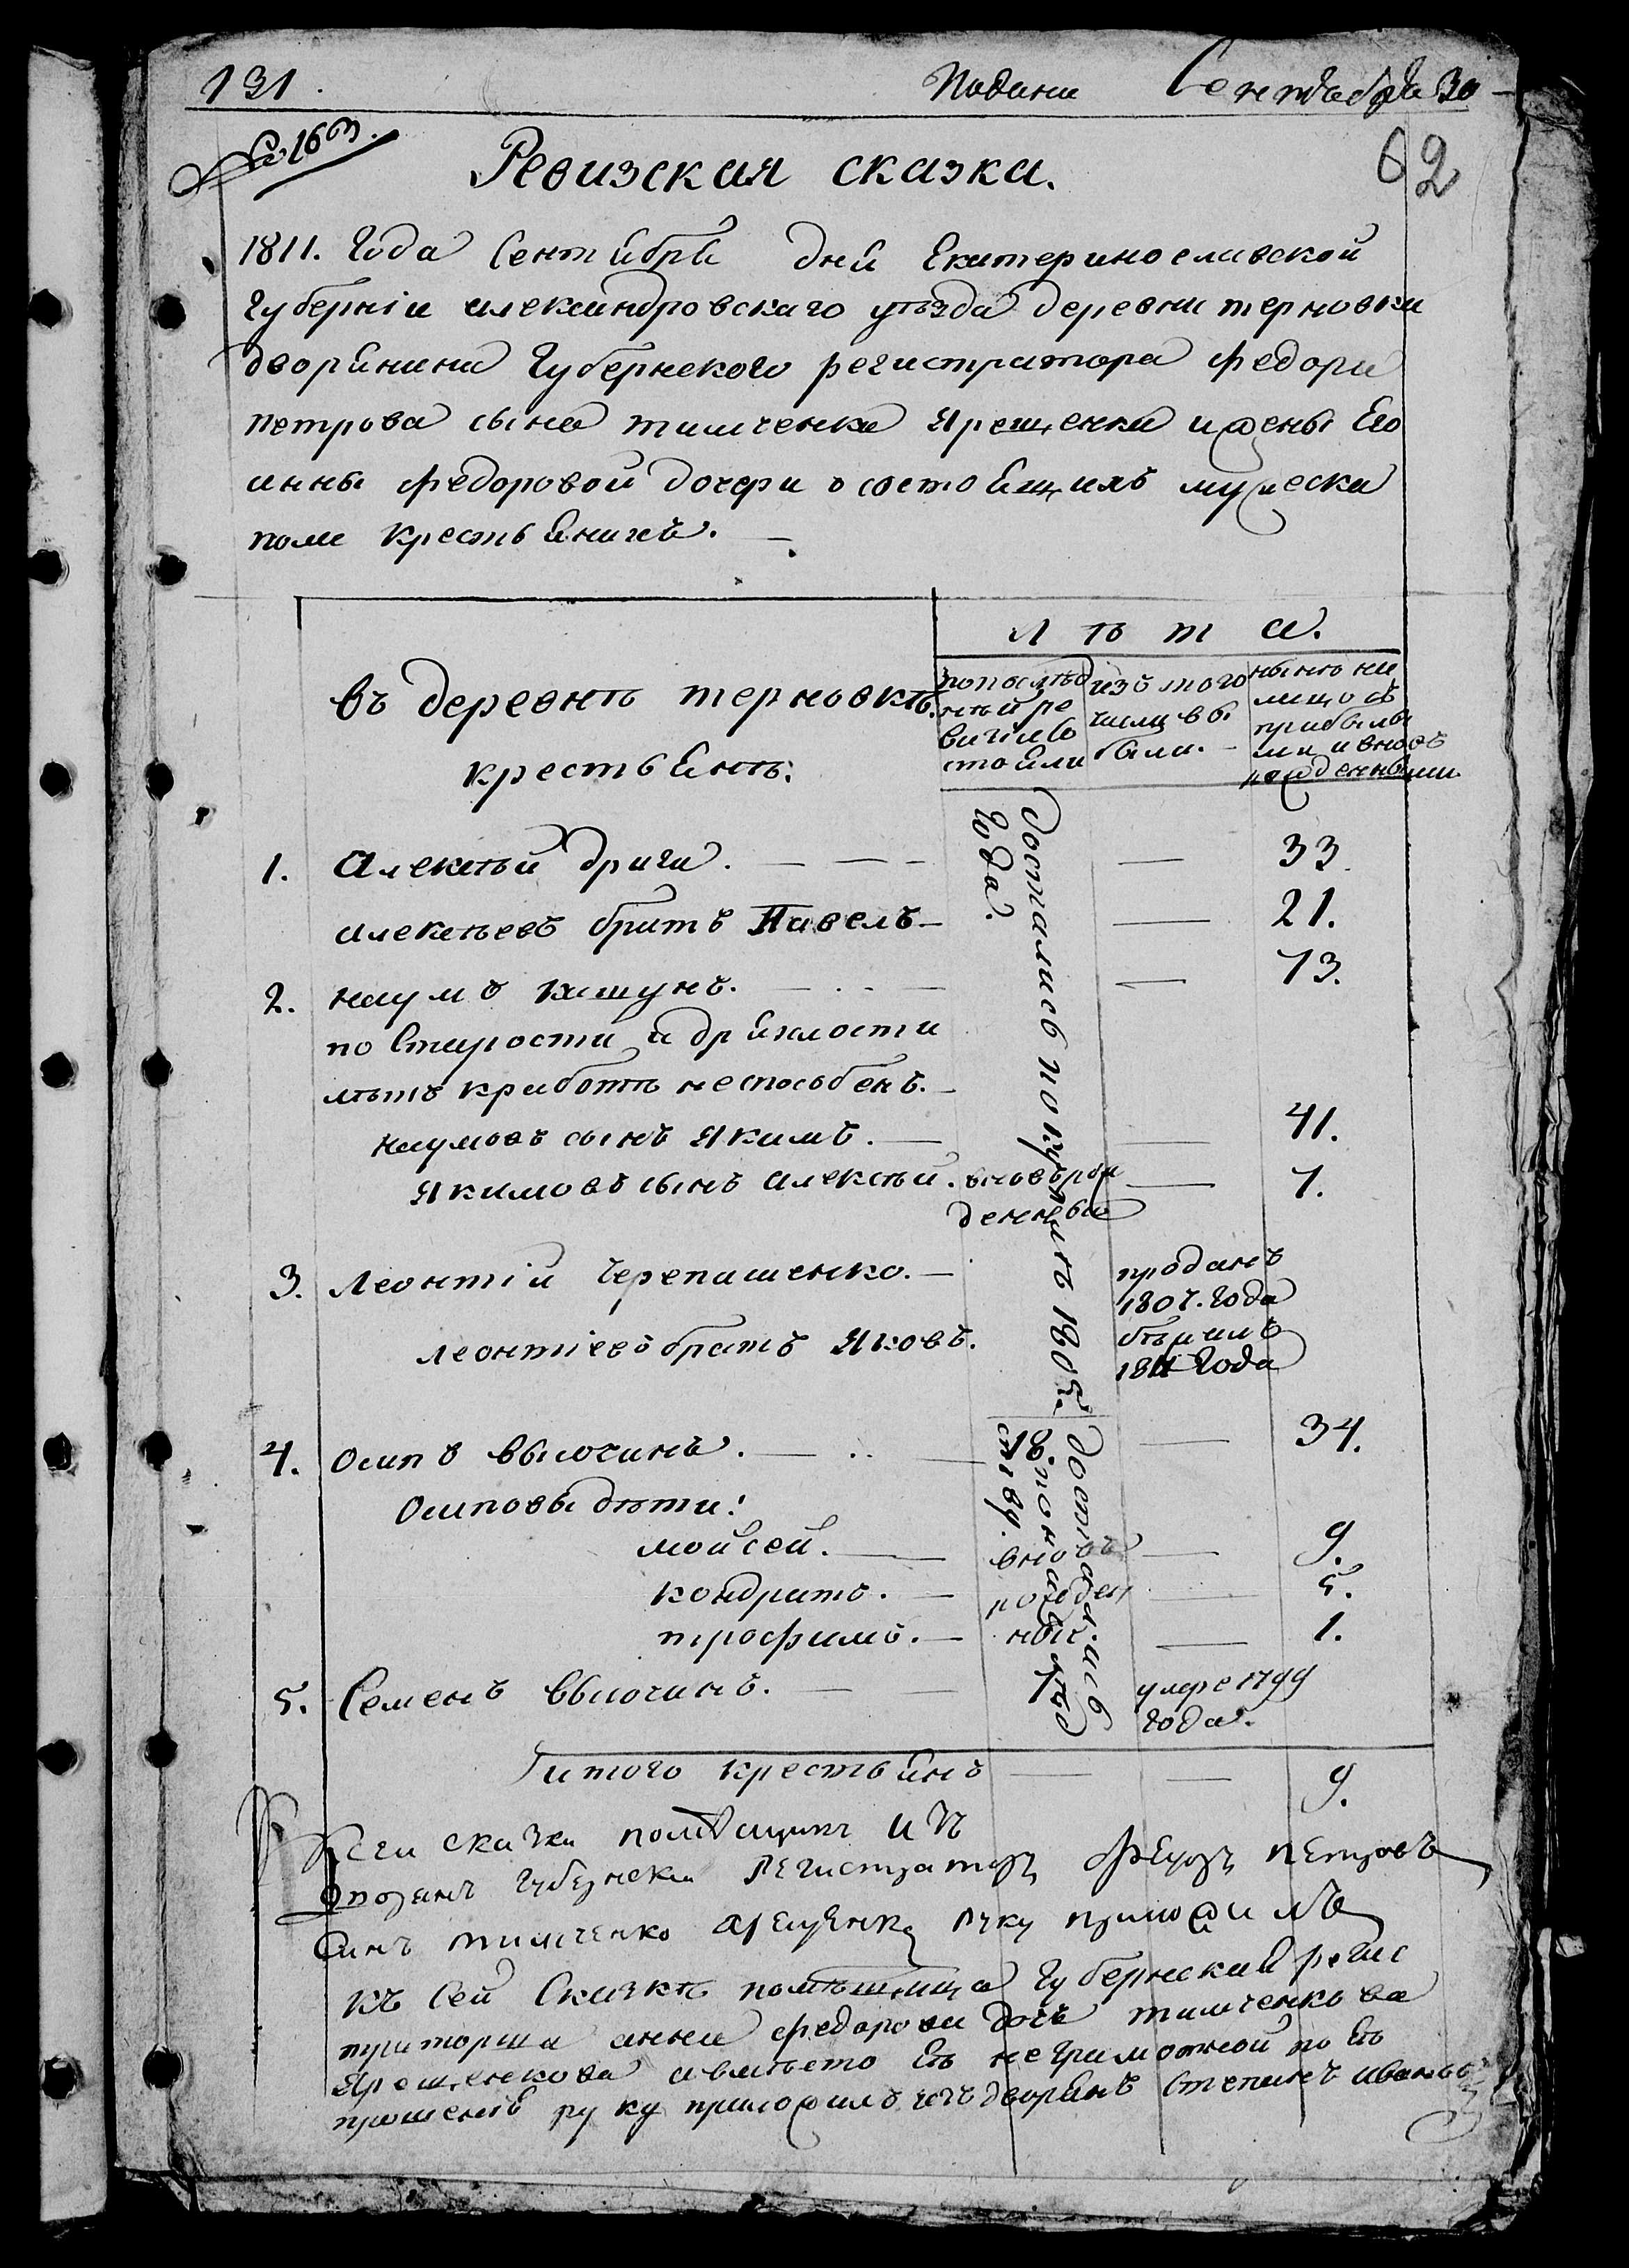 131.
Подана Сентября 30
№ 163.
62
Ревизская сказка.
1811. Года Сентября дня Екатеринославской
Губерніи александровскаго уѣзда деревни терновки
дворянина Губернского регистратора Федора
петрова сына тимченка Ярещенка и жены Его
анны Федоровой дочери о состоящихъ мужеска
пола крестьянахъ.
Л ѣ т а.
въ деревнѣ терновкѣ
крестьянъ:
попослѣд
нѣй ре
визіи со
стояли
изъ того
числа вы
были.
нынѣ на
лицо съ
прибылы
ми и вновь
рожденными
достались по купчѣ 1805го
Года.
1. Алексѣй дрига. — — — — 33
алексѣевъ братъ Павелъ — — 21.
2. наумъ кашунъ. — — — 73.
по Старости и дряхлости
лѣтъ к работѣ неспособенъ.
наумовъ сынъ Якимъ. — — 41.
Якимовъ сынъ алексѣй. вновърож — 7.
денный
3. Леонтій Черепашенко. — проданъ
1807. Года
леонтіевъ братъ Яковъ. бѣжалъ
1811 Года
4. осипъ вьючинъ. — 18. — 34.
достались
по наслѣд
ству.
осиповы дѣти:
мойсей. — вновь — 9.
кондратъ. — рожден — 5.
трофимъ. — ный — 1.
5. Семенъ вьючинъ. — — 7 умре 1799
Года.
итого крестьянъ — — 9.
сеи сказки помещикъ
Губернски Регистраторъ Федоръ Петровъ
Синъ тимченко Ярещенко руку приложилъ
къ Сей Сказкѣ помѣщица Губернский регис
траторша анна федорова дочь тимченкова
Ярещенкова авместо Еѣ неграмотной по Еѣ
прошенію руку приложилъ изъ дворянъ Степанъ ивановъ